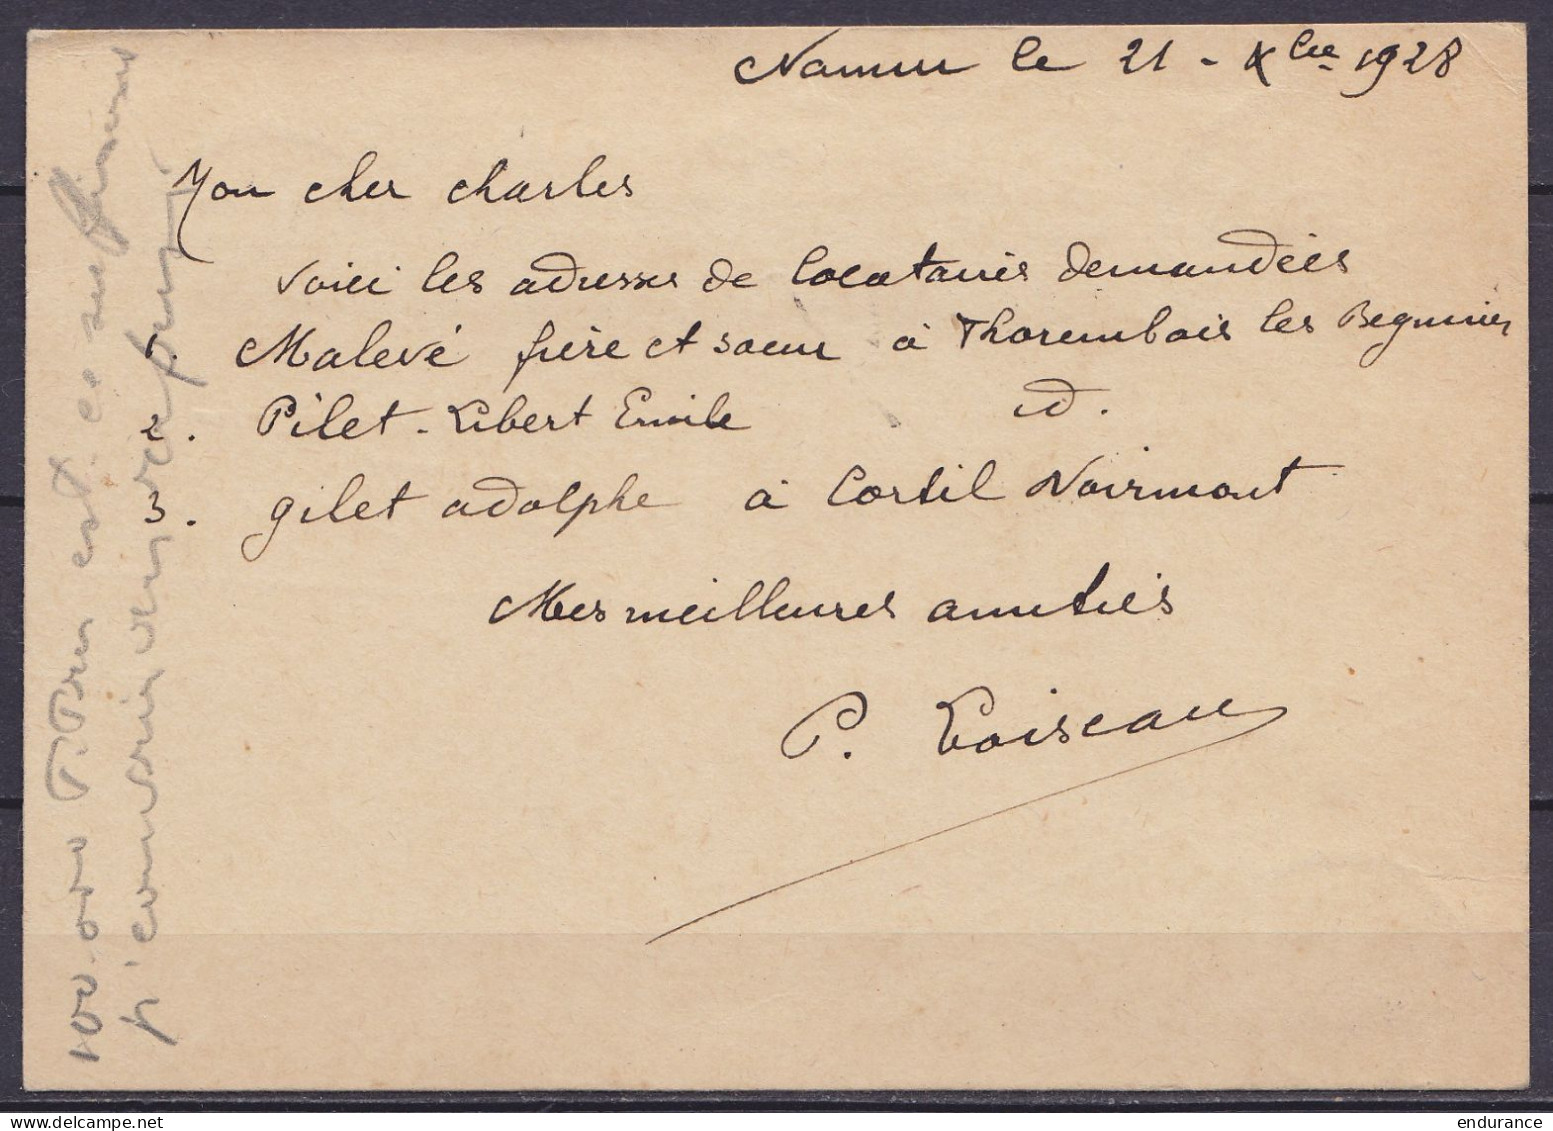 Namur le 21 - Xbre 1928
Mon cher Charles
Voici les adresses de locataires demandées
1. Malevé frère et soeur à Thorembais les Beguines
2. Pilet-Libert Emile id.
3. Gilet Adolphe à Cortil Noirmont
Mes meilleures amitiés
P. Loiseau
100.000 est ce
endurance